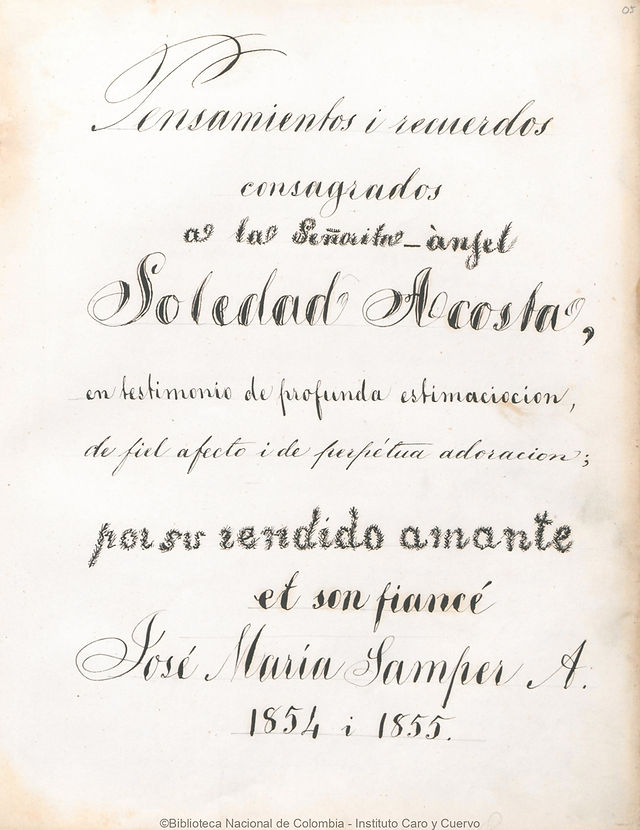 05
Pensamientos i recuerdos
consagrados
a la Señorita-ànjel
Soledad Acosta,
en testimonio de profunda estimaciocion,
de fiel afecto i de perpétua adoracion;
por su rendido amante
et son fiancé
José María Samper A.
1854 i 1855.
©Biblioteca Nacional de Colombia - Instituto Caro y Cuervo